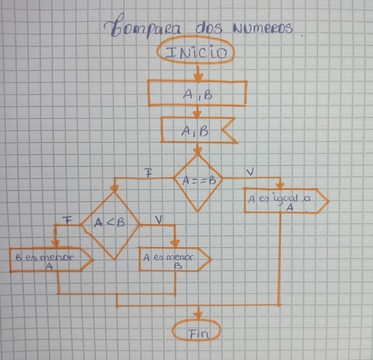 Compara dos numeros.
INICIO
A,B
A,B
F
V
A==B
A es igual a
A
F
A<B
V
B es menor
A
A es menor
B
Fin